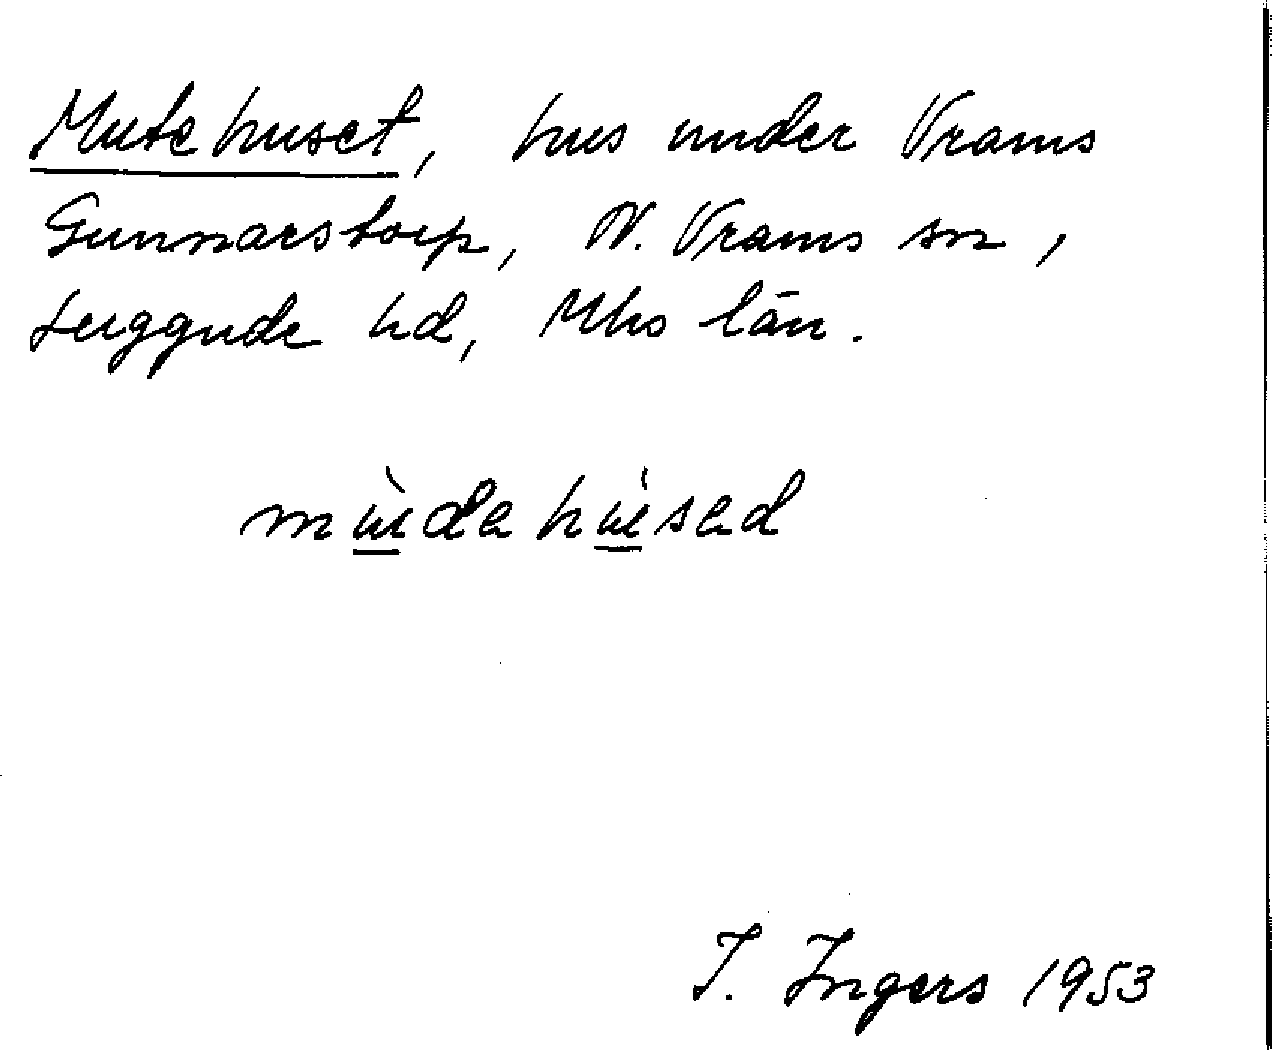 Mutehuset, hus under Vrams
Gunnarstorp, N. Vrams sn,
Luggude hd, Mhs län.
mùdahúsad
I. Ingers 1953